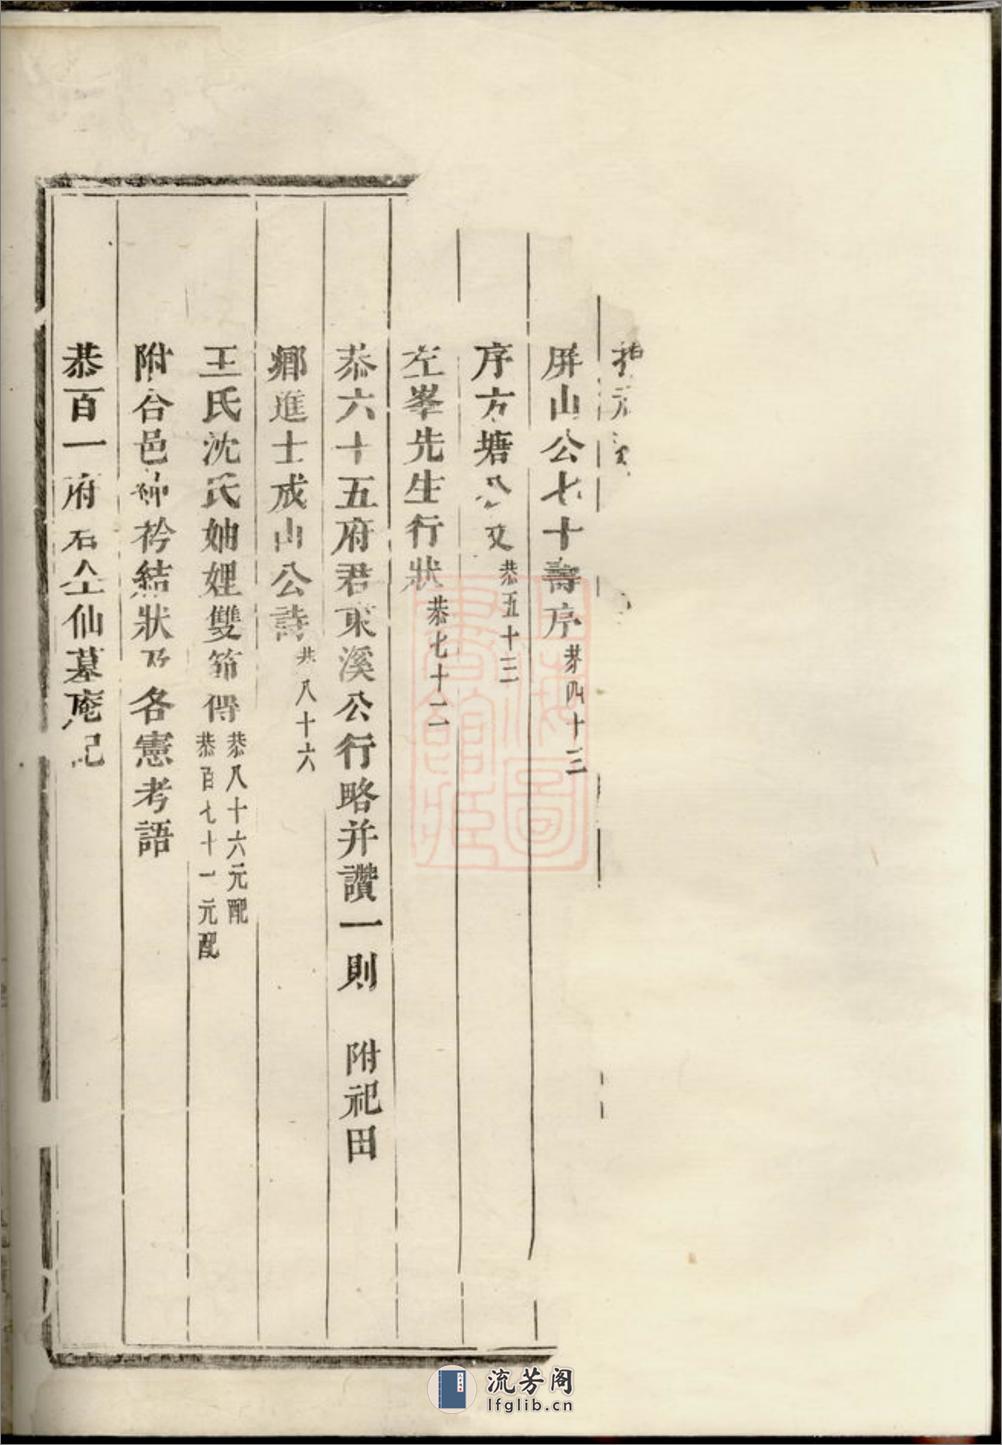 屏山公七十壽序 恭四十三
序方塘公文 恭五十三
左峯先生行狀 恭七十二
恭六十五府君東溪公行略并讚一則 附祀田
鄉進士成山公詩 恭八十六
王氏沈氏妯娌雙節傳 恭八十六元配 恭百七十一元配
附合邑紳衿結狀及各憲考語
恭百一府君仙墓庵記
上海圖書館藏
流芳阁
lfglib.cn